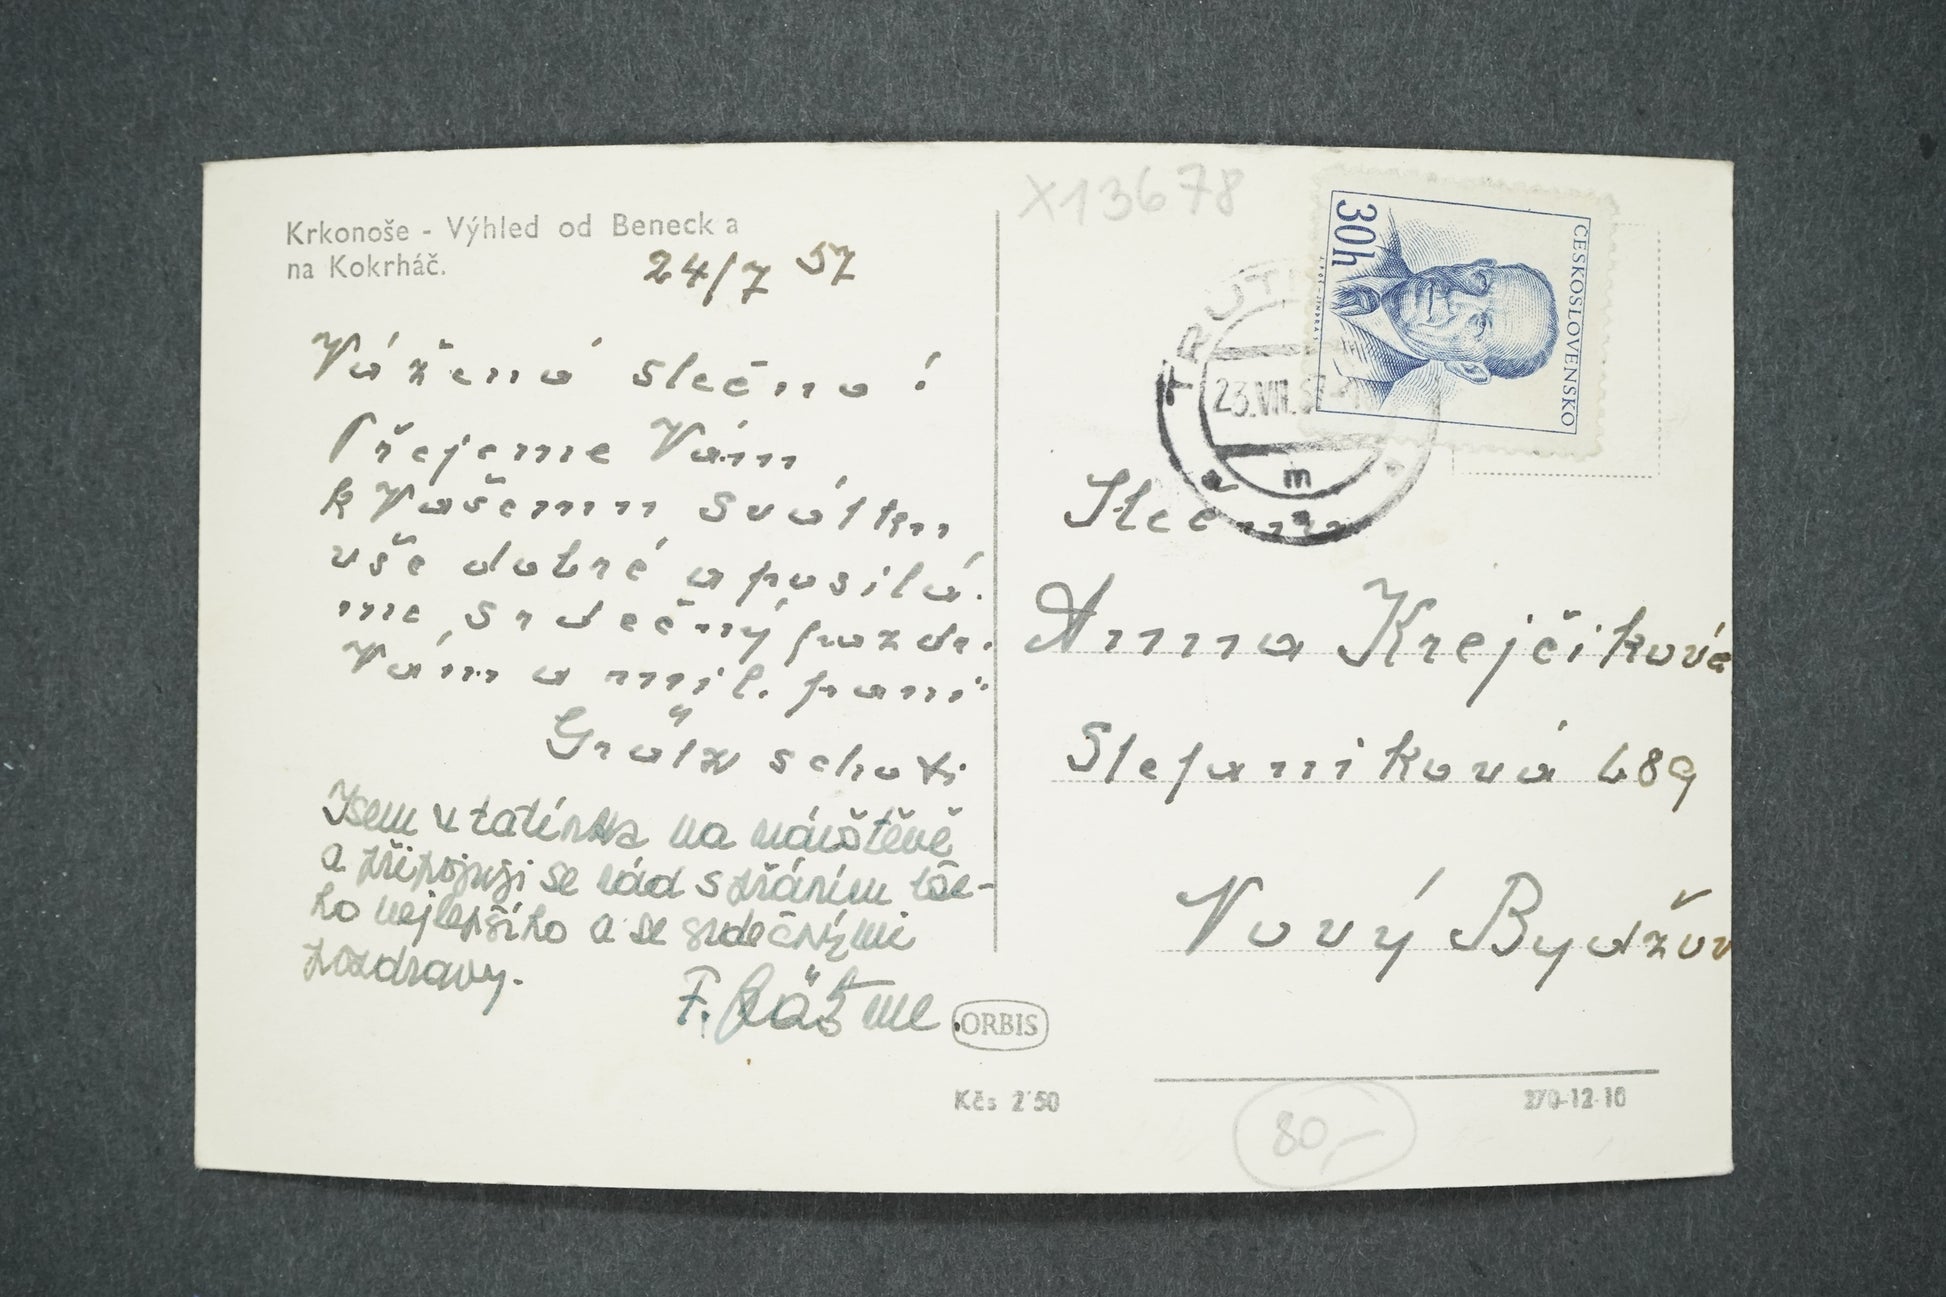 Krkonoše - Výhled od Benecka
na Kokrháč.
24/7 57
Vážená slečno!
Přejeme Vám
k Vašemu svátku
vše dobré a posílá-
me srdečný pozdr.
Vám a mil. paní
Jsem u tatínka na návštěvě
a připojuji se rád s přáním vše-
ho nejlepšího a se srdečnými
pozdravy.
F.
ORBIS
Kčs 2'50
X13678
ČESKOSLOVENSKO
30h
TRUT
23.VII.57
m
a
Slečna
Anna Krejčíková
Stefanikova 689
Nový Bydžov
270-12-10
80,-